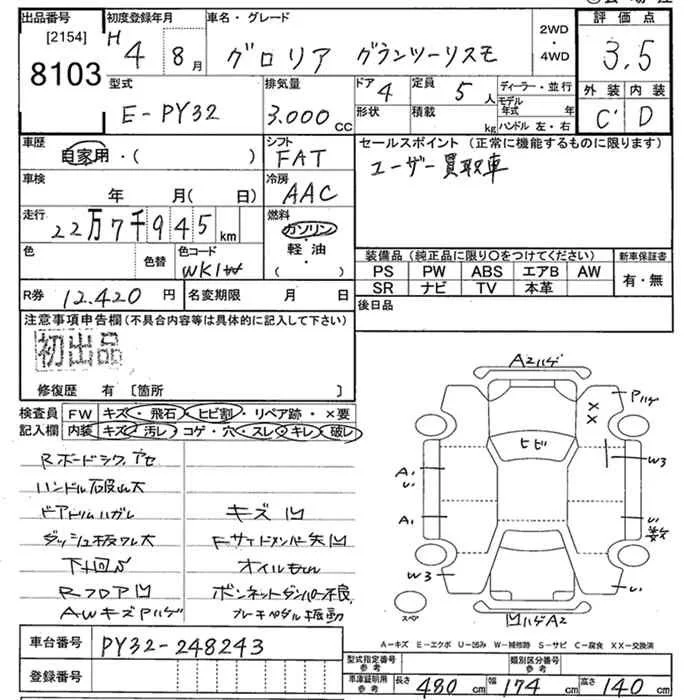 出品番号 初度登録年月 車名・グレード 2WD ・ 4WD 評価点
[2154]
8103 H 4 8月 グロリア グランツーリスモ 3.5
型式 排気量 ドア 4 定員 5人 ディーラー・並行 外装 内装
E-PY32 3.000cc 形状 積載 kg モデル年式 年 C D
ハンドル 左・右
車歴 シフト セールスポイント(正常に機能するものに限ります)
自家用・( ) FAT ユーザー買取車
車検 冷房
年 月(日) AAC
走行 燃料
22万7千945km ガソリン
色 色替 色コード 軽油 装備品(純正品に限り○をつけてください) 新車保証書
WK1 ( ) PS PW ABS エアB AW 有・無
SR ナビ TV 本革
R券 12.420円 名変期限 月 日 後日品
注意事項申告欄(不具合内容等は具体的に記入して下さい)
初出品
修復歴 有[箇所 ]
検査員 FW キズ・飛石・ヒビ割・リペア跡・×要
記入欄 内装 キズ・汚レ・コゲ・穴・スレ・キレ・破レ
Rボードシワ、アセ
ハンドル
ドアトリムハガレ キズ凹
ダッシュ板ワレ大 Fサイドメンバー
下廻 オイルもれ
Rフロア凹 ボンネットダンパー不良
AWキズPハゲ ブレーキペダル振動
A2ハゲ
Pハゲ
XX
ヒビ
W3
A1
U1
A1
U1
数
W3
U1
スペア
凹ハゲA2
A-キズ E-エクボ U-凹み W-補修跡 S-サビ C-腐食 XX-交換済
車台番号 PY32-248243
型式指定番号 参考 類別区分番号 参考
登録番号
車庫証明用 参考 長さ 480cm 幅 174cm 高さ 140cm